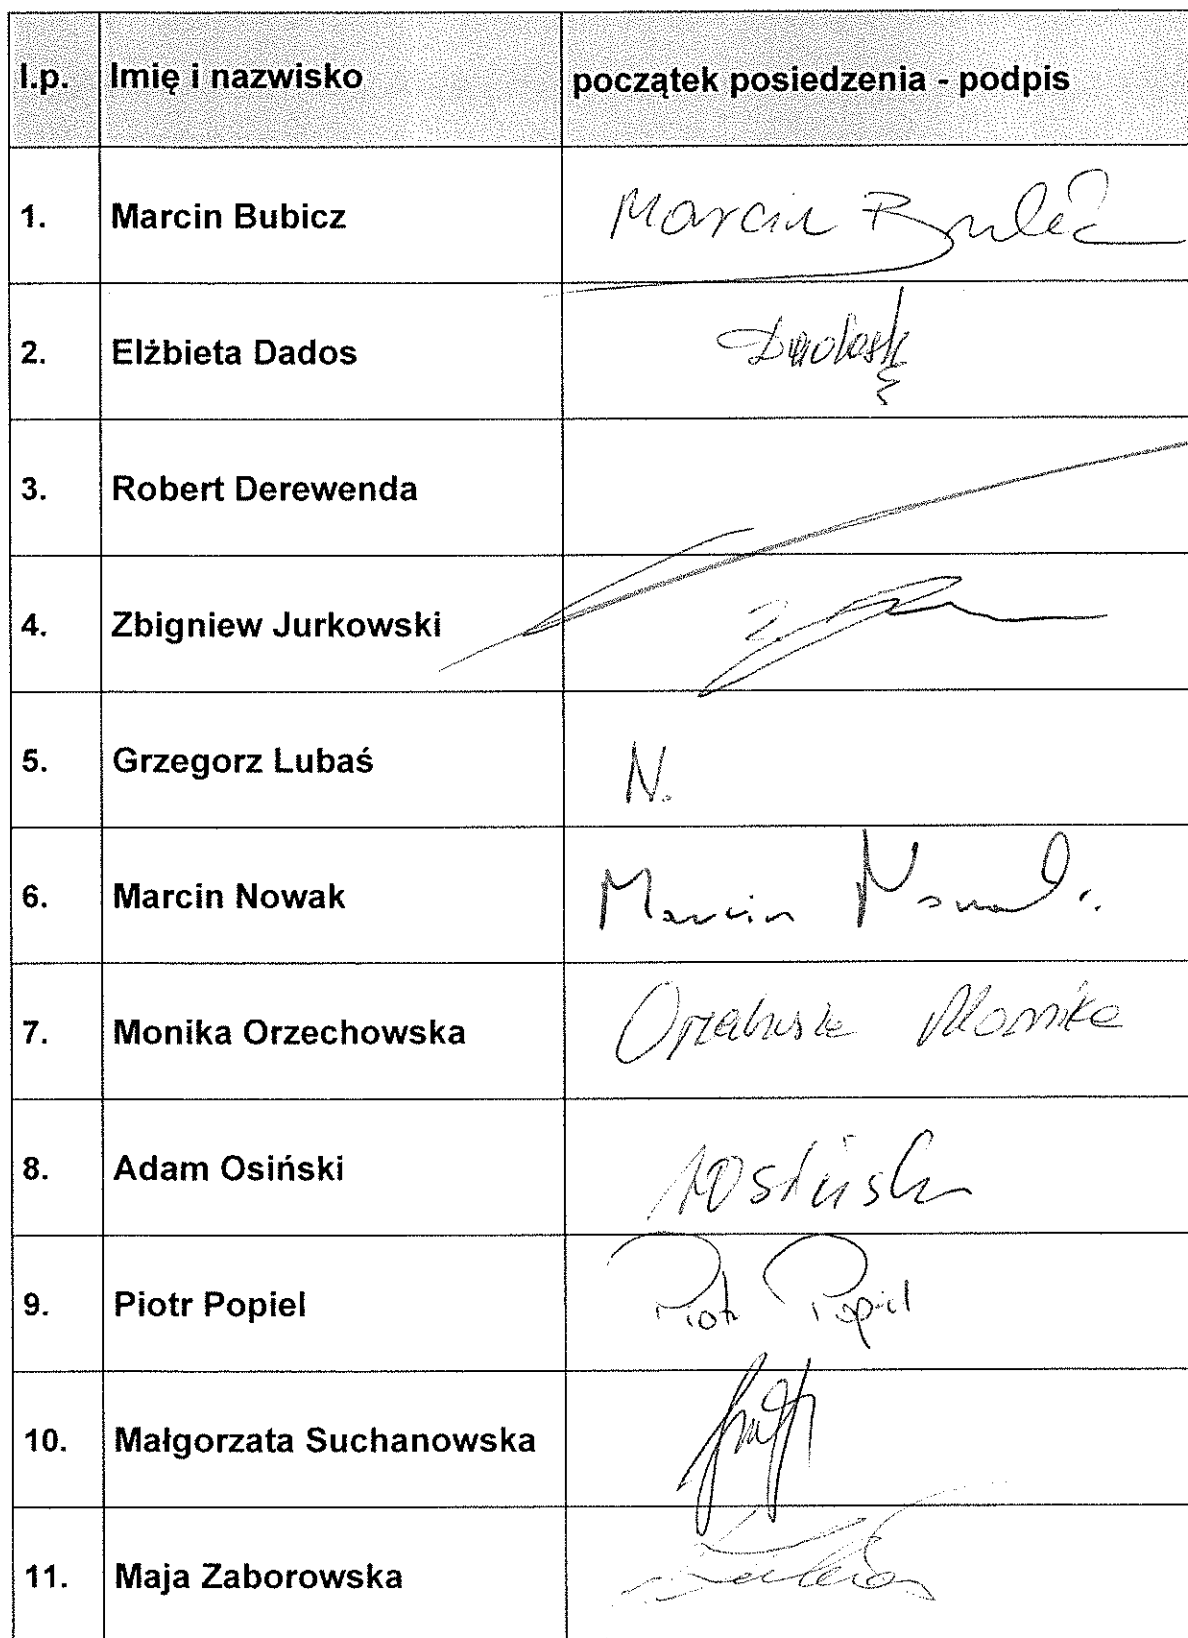 l.p. Imię i nazwisko początek posiedzenia - podpis
1. Marcin Bubicz Marcin
2. Elżbieta Dados
3. Robert Derewenda
4. Zbigniew Jurkowski
5. Grzegorz Lubaś N.
6. Marcin Nowak Marcin
7. Monika Orzechowska Monika
8. Adam Osiński
9. Piotr Popiel Piotr Popiel
10. Małgorzata Suchanowska
11. Maja Zaborowska